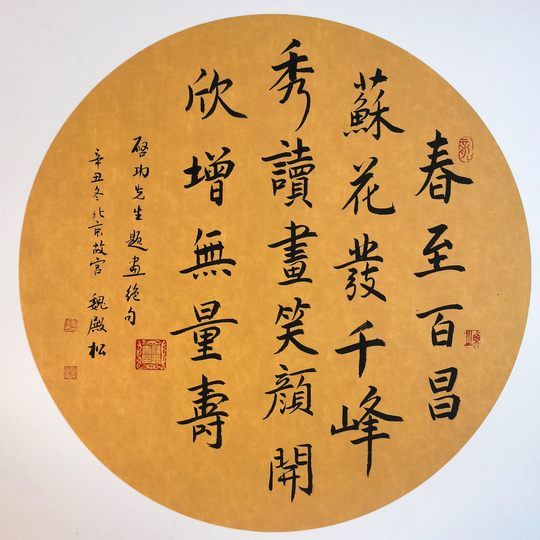 春至百昌
蘇花發千峰
秀讀畫笑顏開
欣增無量壽
啓功先生題畫絕句
辛丑冬北京故宮 魏殿松